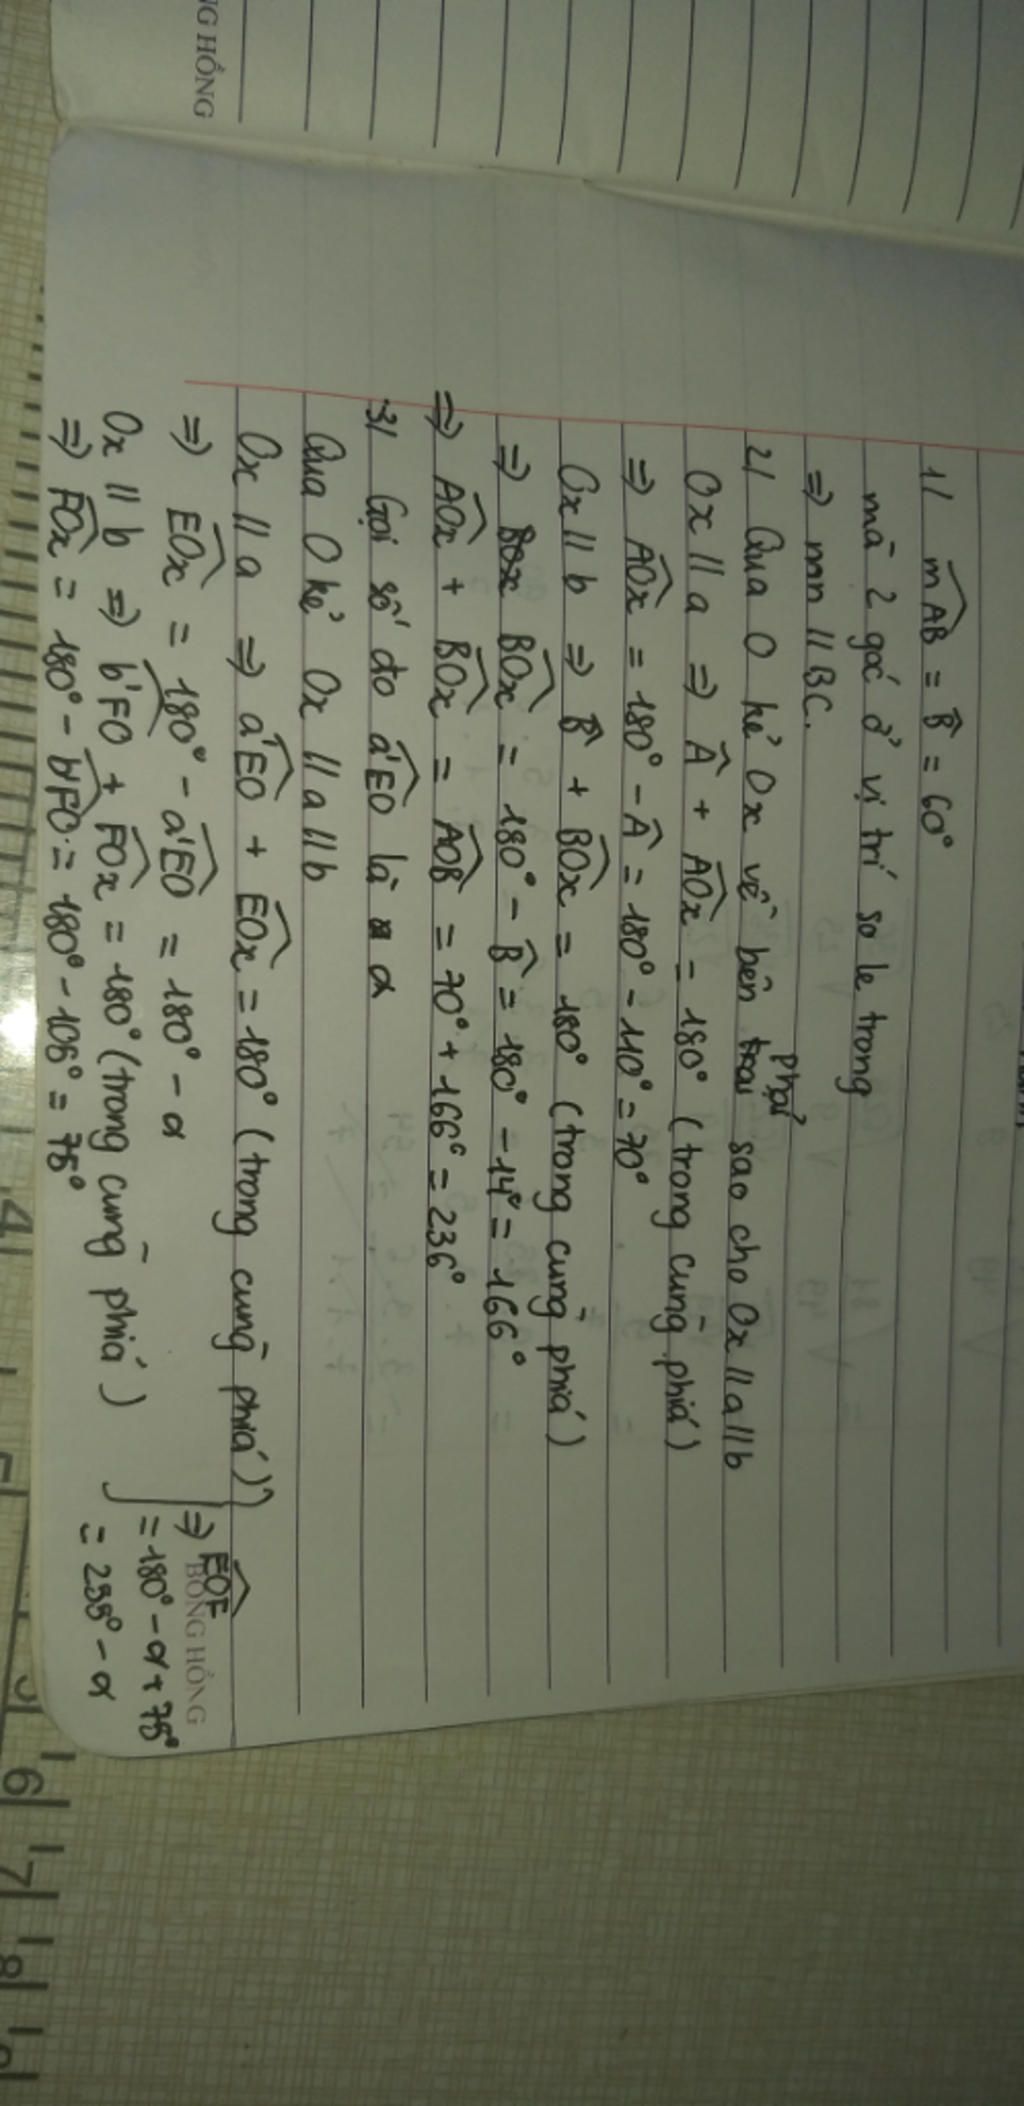 1/ mAB = B = 60°
mà 2 góc ở vị trí so le trong
=> mn // BC.
2/ Qua O kẻ Ox về bên phải sao cho Ox // a // b
Ox // a => Â + AOx = 180° (trong cùng phiá)
=> AOx = 180° - Â = 180° - 110° = 70°
Ox // b => B + BOx = 180° (trong cùng phiá)
=> BOx = 180° - B = 180° - 14° = 166°
=> AOx + BOx = AOB = 70° + 166° = 236°
3/ Gọi số đo a'EO là α
Qua O kẻ Ox // a // b
Ox // a => a'EO + EOx = 180° (trong cùng phiá)
=> EOx = 180° - a'EO = 180° - α
Ox // b => b'FO + FOx = 180° (trong cùng phiá)
=> FOx = 180° - b'FO = 180° - 105° = 75°
=> EOF
= 180° - α + 75°
= 255° - α
BÔNG HỒNG
NG HỒNG
4
5
6
7
8